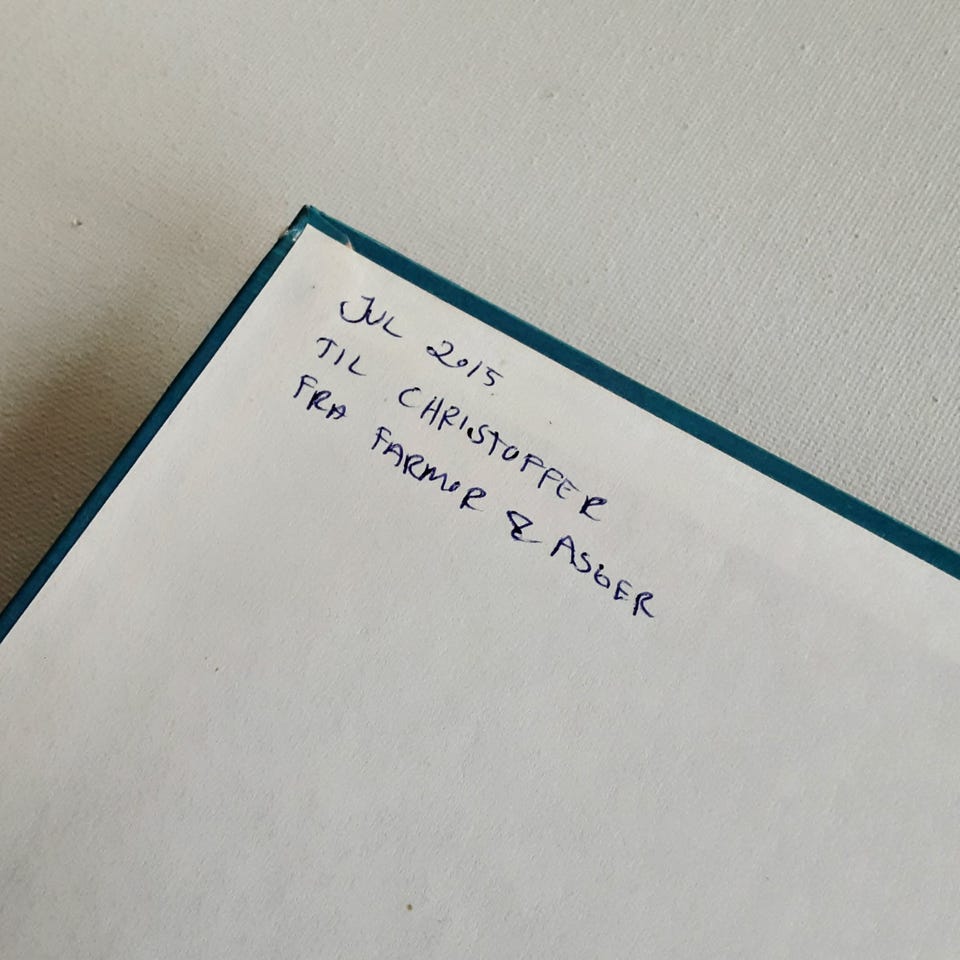 JUL 2015
TIL CHRISTOFFER
FRA FARMOR & ASGER